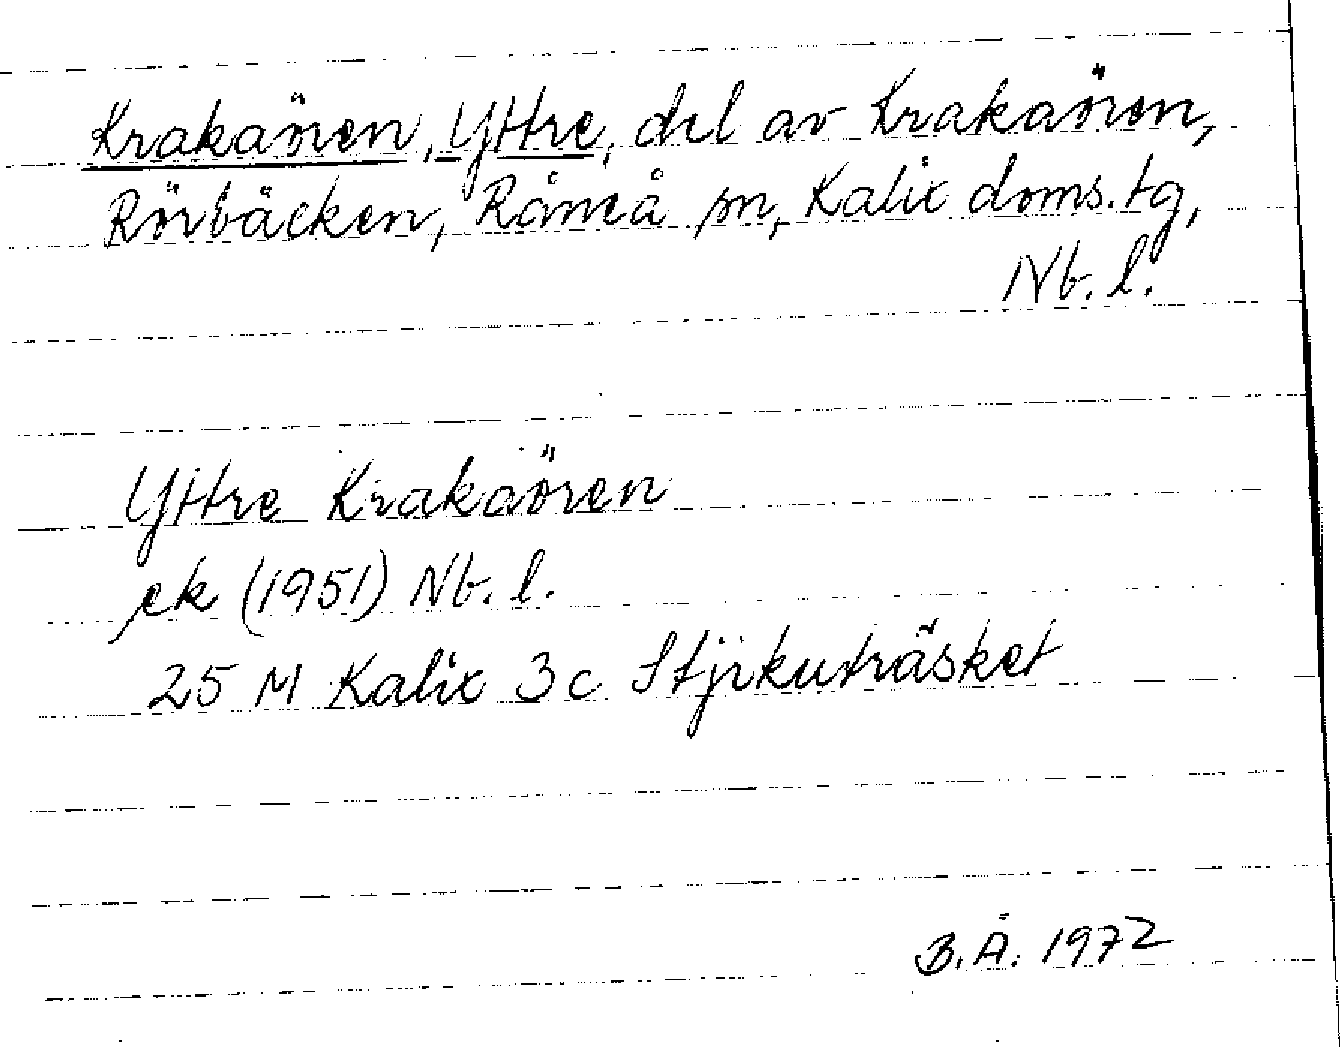 Krakaören, Yttre, del av Krakaören,
Rörbäcken, Råneå sn, Kalix doms.tg,
Nb. l.
Yttre Krakaören
ek (1951) Nb. l.
25 M Kalix 3c Stjrkuträsket
B. Å. 1972